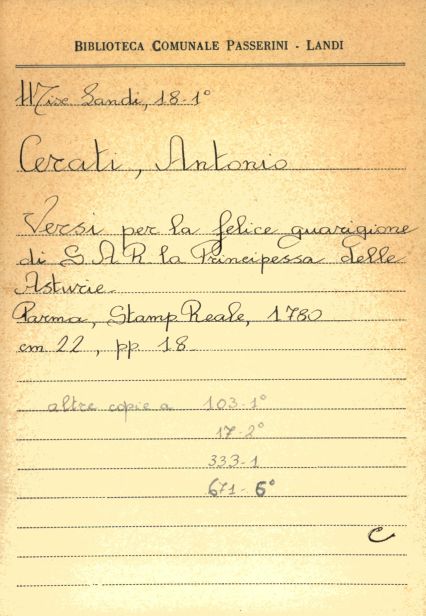 BIBLIOTECA COMUNALE PASSERINI - LANDI
Misc Landi, 18-1°
Cerati, Antonio
Versi per la felice guarigione
di S A R la Principessa delle
Asturie.
Parma, Stamp Reale, 1780
cm 22, pp 18
altre copie a 103-1°
17-2°
333-1
671-6°
C